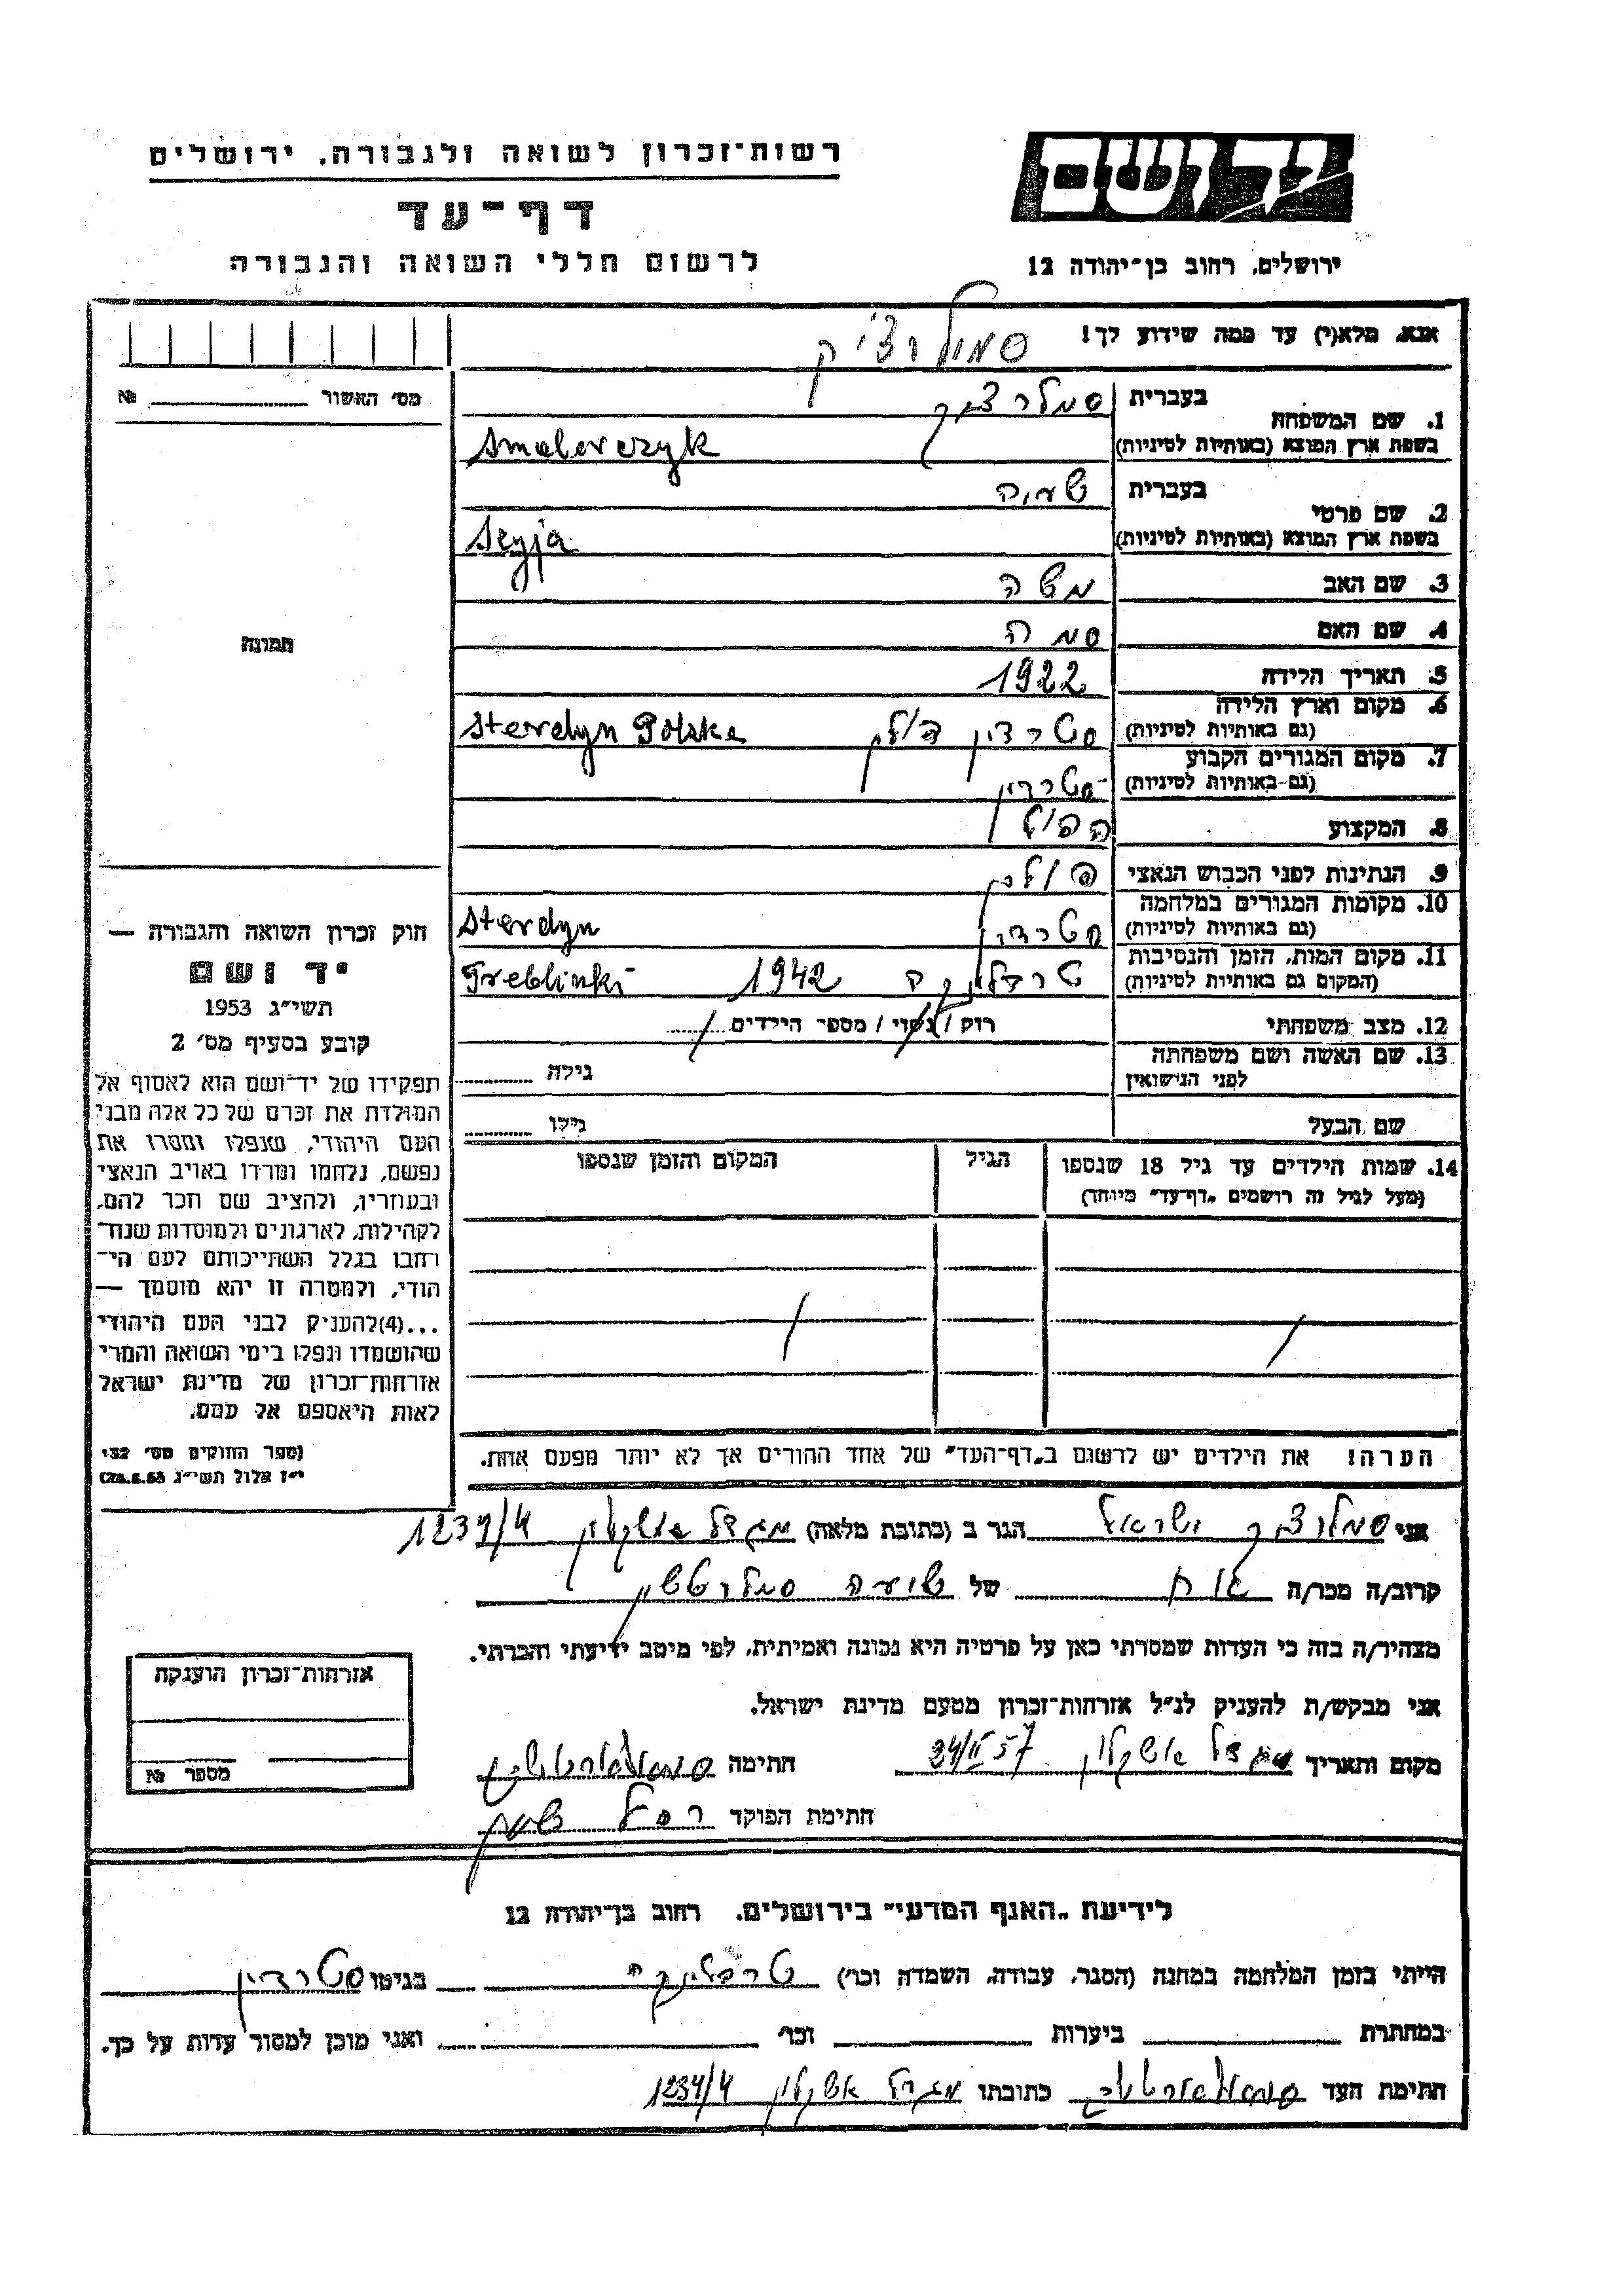 יד ושם
רשות־זכרון לשואה ולגבורה. ירושלים
דף־עד
לרשום חללי השואה והגבורה
ירושלים, רחוב בן־יהודה 12
אנא, מלא(י) עד כמה שידוע לך!
סמולרצ'יק
מס' האשור № 
1. שם המשפחה בעברית סמלרציק
בשפת ארץ המוצא (באותיות לטיניות) Smalerczyk
2. שם פרטי בעברית
בשפת ארץ המוצא (באותיות לטיניות)
3. שם האב משה
4. שם האם
5. תאריך הלידה 1922
6. מקום וארץ הלידה (גם באותיות לטיניות) סטרדין פולין Sterdyn Polska
7. מקום המגורים הקבוע (גם באותיות לטיניות) סטרדין
8. המקצוע
9. הנתינות לפני הכבוש הנאצי פולנית
10. מקומות המגורים במלחמה (גם באותיות לטיניות) סטרדין Sterdyn
11. מקום המות, הזמן והנסיבות (המקום גם באותיות לטיניות) טרבלינקה 1942 Treblinki
12. מצב משפחתי רווק / נשוי / מספר הילדים
13. שם האשה ושם משפחתה לפני הנישואין גילה
שם הבעל גילו
14. שמות הילדים עד גיל 18 שנספו (מעל לגיל זה רושמים „דף־עד" מיוחד)
הגיל
המקום והזמן שנספו
תמונה
חוק זכרון השואה והגבורה —
יד ושם
תשי״ג 1953
קובע בסעיף מס' 2
תפקידו של יד־ושם הוא לאסוף אל
המולדת את זכרם של כל אלה מבני
העם היהודי, שנפלו ומסרו את
נפשם, נלחמו ומרדו באויב הנאצי
ובעוזריו, ולהציב שם וזכר להם,
לקהילות, לארגונים ולמוסדות שנח־
רבו בגלל השתייכותם לעם הי־
הודי, ולמטרה זו יהא מוסמך —
...(4)להעניק לבני העם היהודי
שהושמדו ונפלו בימי השואה והמרי
אזרחות־זכרון של מדינת ישראל
לאות היאספם אל עמם.
(ספר החוקים מס' 132,
י״ז אלול תשי״ג 28.8.53)
הערה! את הילדים יש לרשום ב„דף־העד" של אחד ההורים אך לא יותר מפעם אחת.
אני סמלרציק ישראל הגר ב (כתובת מלאה) מגדל אשקלון 1234/4
קרוב/ה מכר/ה אח של
מצהיר/ה בזה כי העדות שמסרתי כאן על פרטיה היא נכונה ואמיתית, לפי מיטב ידיעתי והכרתי.
אני מבקש/ת להעניק לנ״ל אזרחות־זכרון מטעם מדינת ישראל.
מקום ותאריך מגדל אשקלון חתימה
חתימת הפוקד
אזרחות־זכרון הוענקה
מספר №
לידיעת „האגף המדעי" בירושלים. רחוב בן־יהודה 12
הייתי בזמן המלחמה במחנה (הסגר, עבודה, השמדה וכו') טרבלינקה בגיטו סטרדין
במחתרת ביערות וכו' ואני מוכן למסור עדות על כך.
חתימת העד כתובתו מגדל אשקלון 1234/4